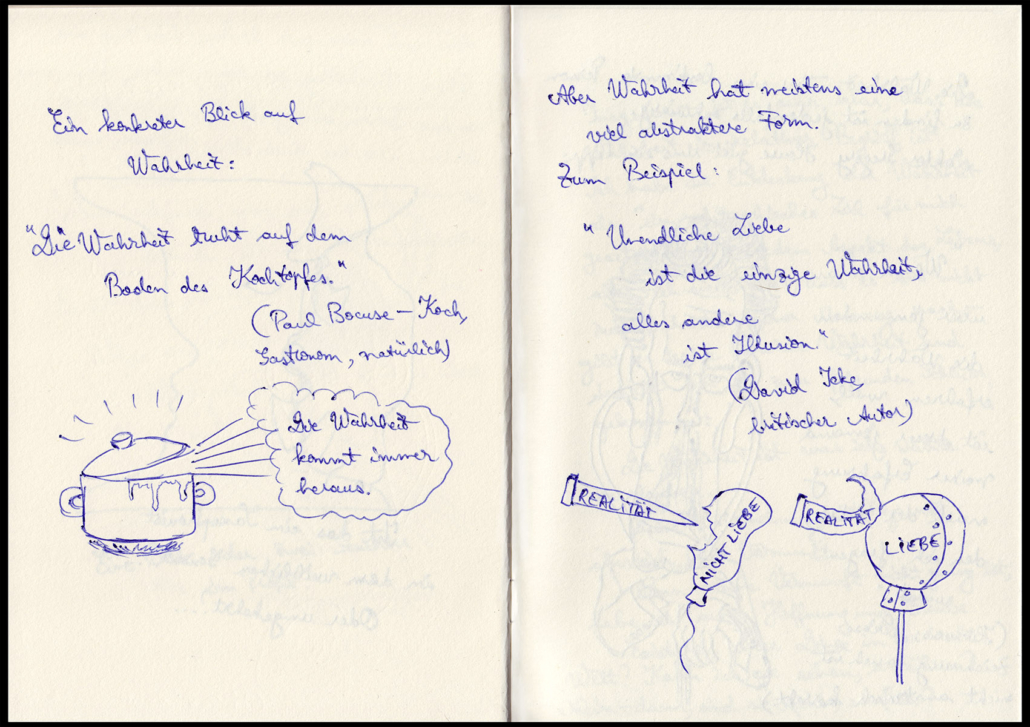 "Ein konkreter Blick auf
Wahrheit:
"Die Wahrheit ruht auf dem
Boden des Kochtopfes."
(Paul Bocuse – Koch,
Gastronom, natürlich)
Die Wahrheit
kommt immer
heraus.
Aber Wahrheit hat meistens eine
viel abstraktere Form.
Zum Beispiel:
"Unendliche Liebe
ist die einzige Wahrheit,
alles andere
ist Illusion."
(David Icke,
britischer Autor)
REALITÄT
NICHT LIEBE
REALITÄT
LIEBE